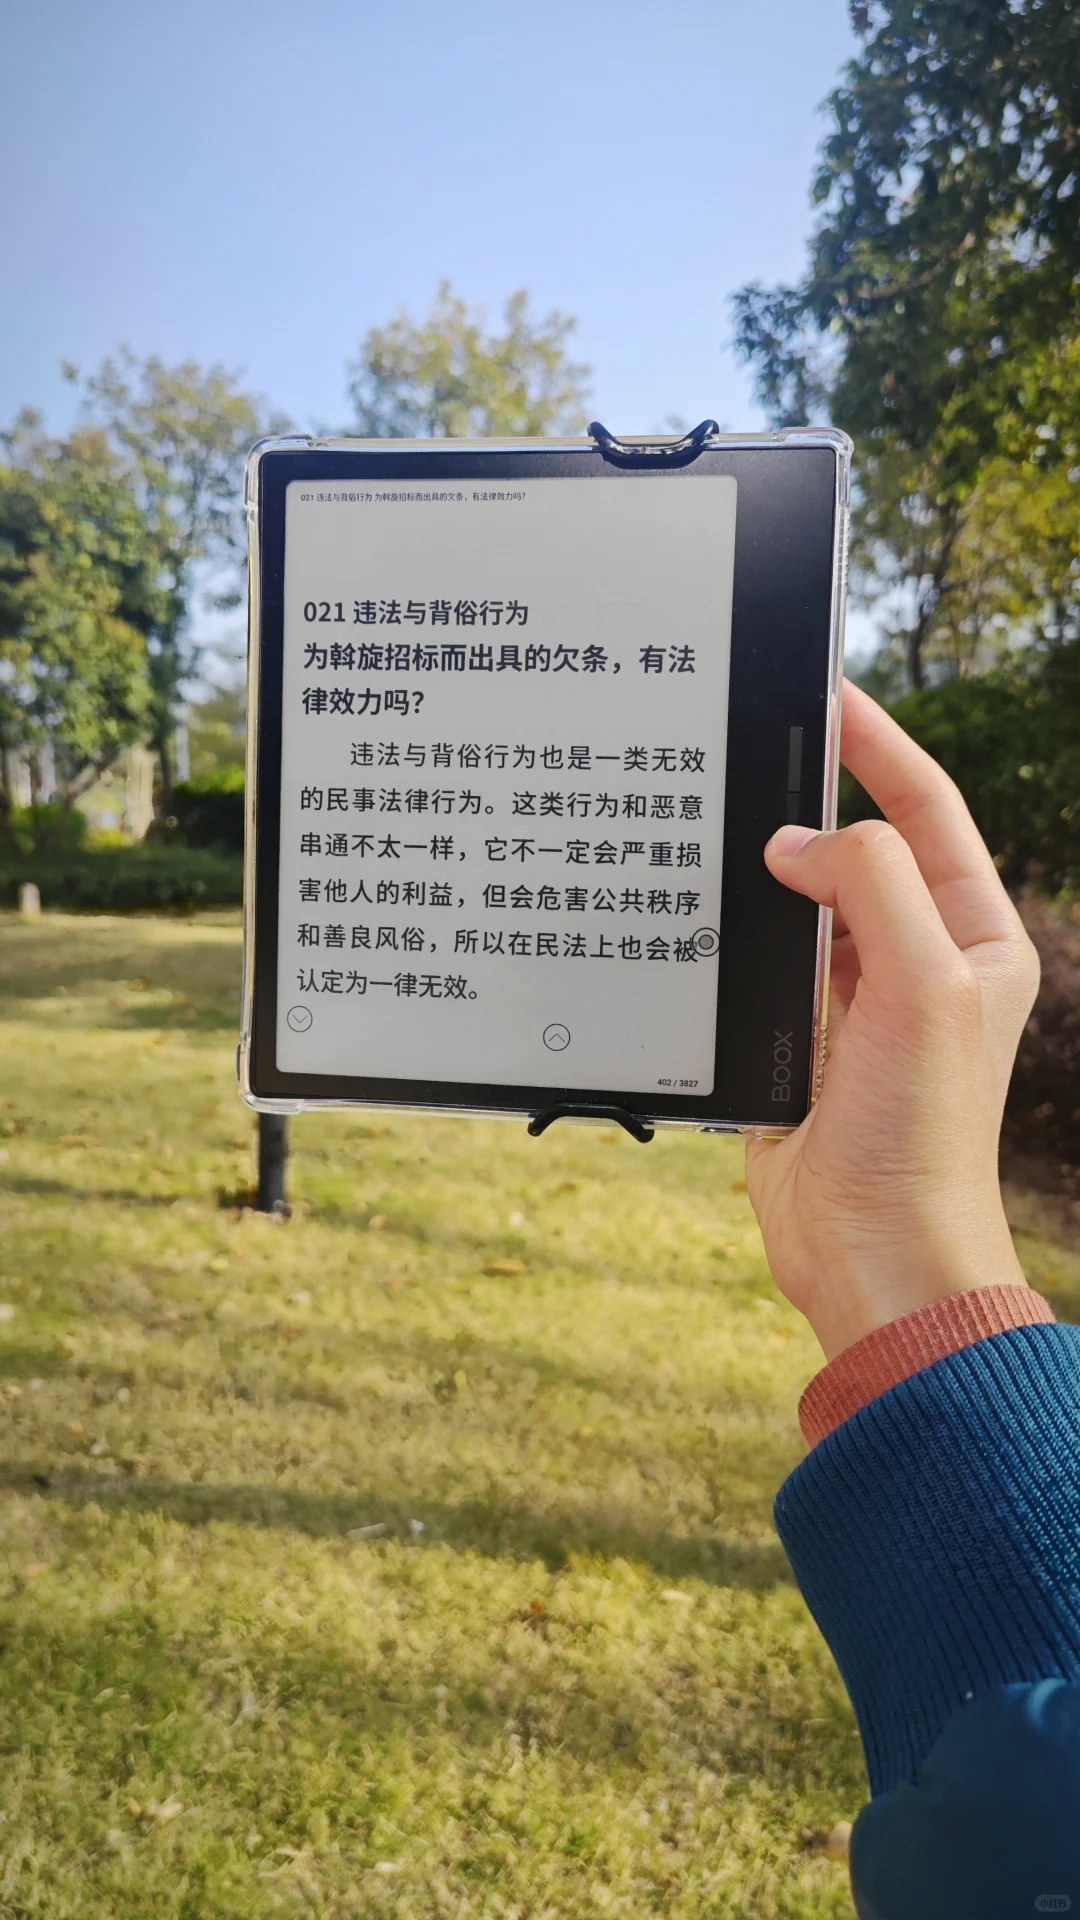 021 违法与背俗行为 为斡旋招标而出具的欠条，有法律效力吗？
021 违法与背俗行为
为斡旋招标而出具的欠条，有法
律效力吗？
违法与背俗行为也是一类无效
的民事法律行为。这类行为和恶意
串通不太一样，它不一定会严重损
害他人的利益，但会危害公共秩序
和善良风俗，所以在民法上也会被
认定为一律无效。
402 / 3827
BOOX
小红书